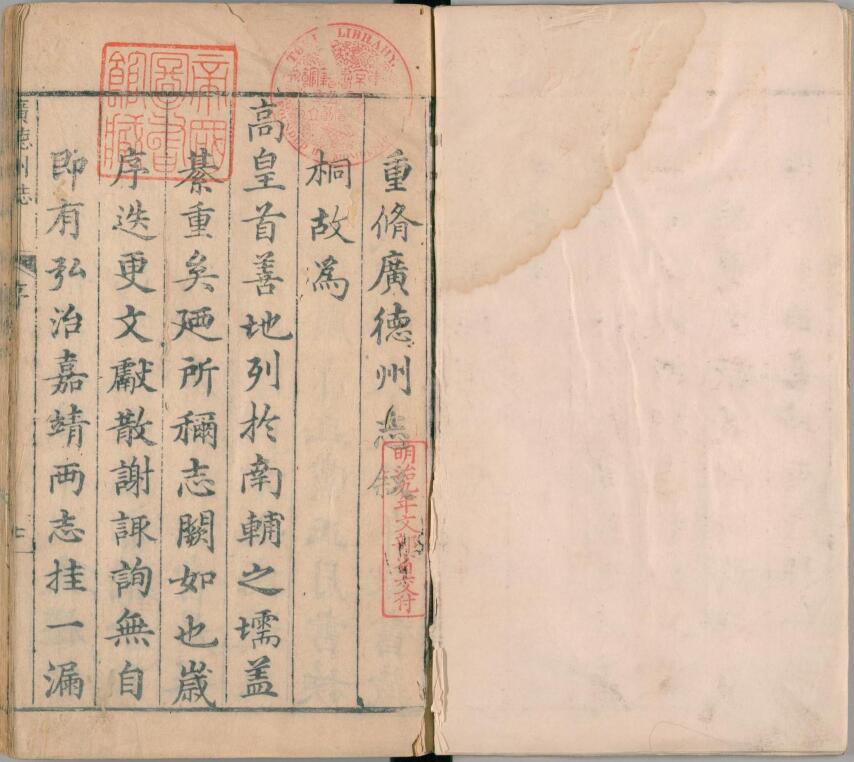 重脩廣德州志敘
桐故爲
高皇首善地列扵南輔之壖盖
綦重矣廼所稱志闕如也歲
序迭更文獻散謝諏詢無自
即有弘治嘉靖兩志挂一漏
廣德州志
序
帝國
圖書
館藏
TOKIO LIBRARY
明治九年文部省交付